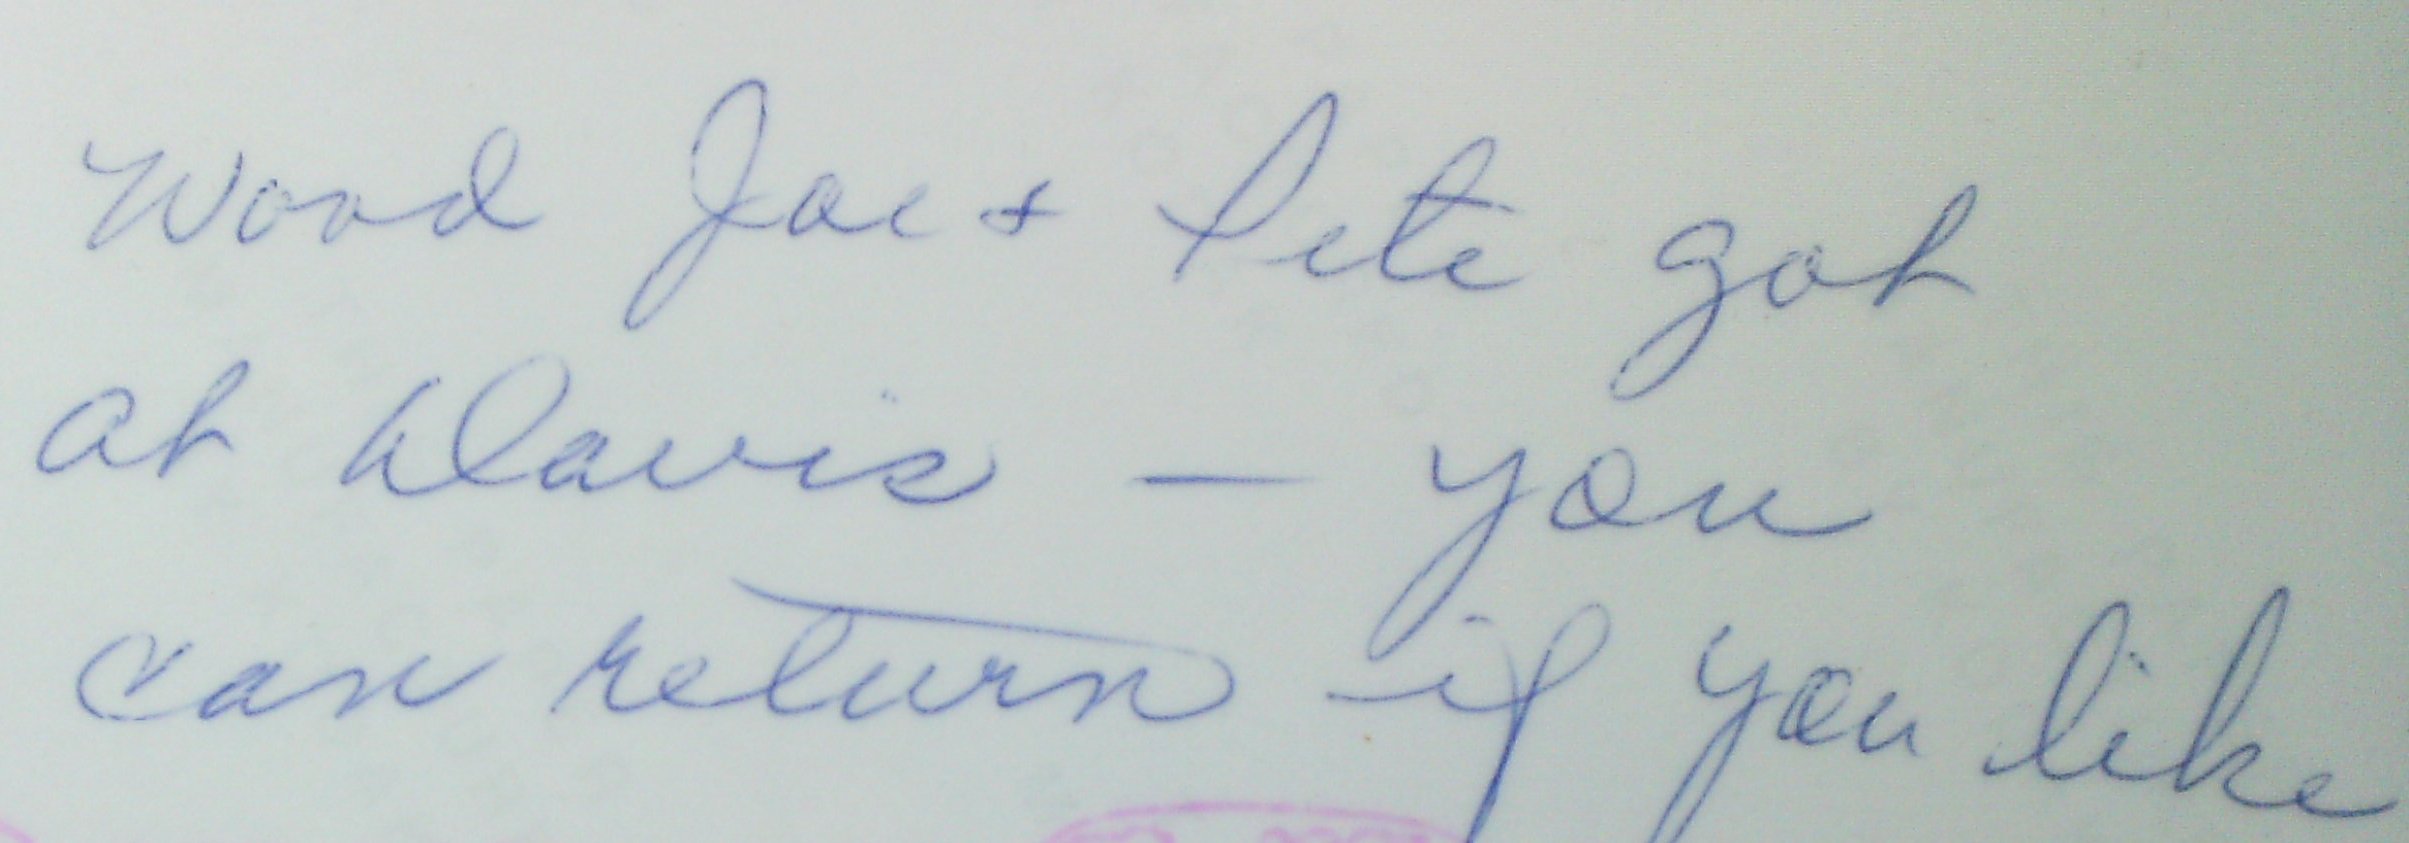 Wood Joe + Pete got
at Davis — you
can return if you like